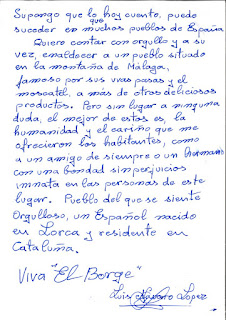 Supongo que lo que hoy cuento, puede
suceder en muchos pueblos de España
Quiero contar con orgullo y a su
vez, enaldecer a un pueblo situado
en la montaña de Málaga,
famoso por sus uvas pasas y el
moscatel, a más de otras deliciosos
productos. Pero sin lugar a ninguna
duda, el mejor de estos es, la
humanidad y el cariño que me
ofrecieron los habitantes, como
a un amigo de siempre o un hermano
con una bondad sin perjuicios
innata en las personas de este
lugar. Pueblo del que se siente
Orgulloso, un Español nacido
en Lorca y residente en
Cataluña.
Viva "El Borge"
Luis Navarro López